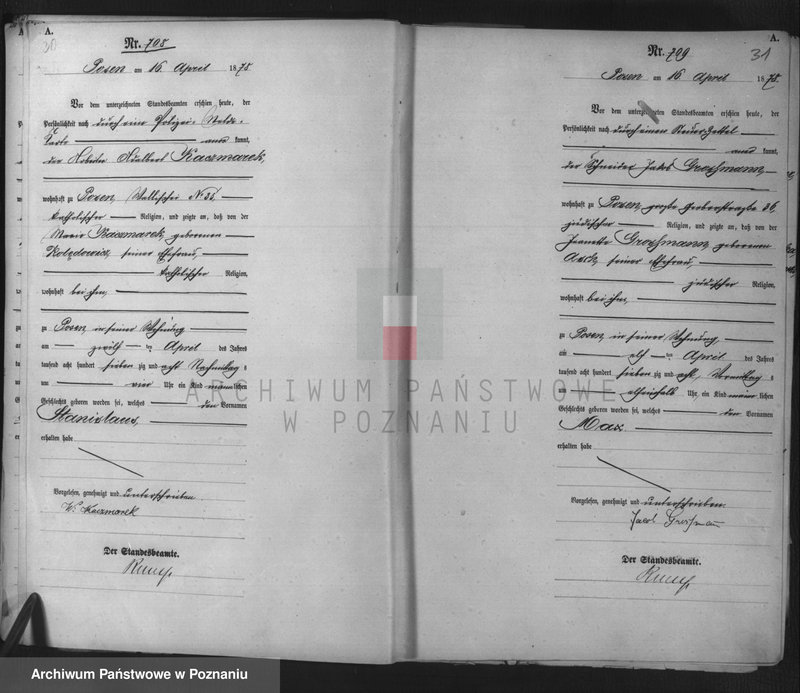 A.
30
Nr. 708
Posen am 16 April 1878
Vor dem unterzeichneten Standesbeamten erschien heute, der
Persönlichkeit nach durch eine Polizei-
Karte kannt,
der Arbeiter Adalbert Kaczmarek,
wohnhaft zu Posen, Wallischei No 35,
katholischer Religion, und zeigte an, daß von der
Marie Kaczmarek, geborenen
seiner Ehefrau,
katholischer Religion,
wohnhaft bei ihm,
zu Posen in seiner Wohnung
am zwölf ten April des Jahres
tausend acht hundert sieben zig und acht Nachmittag s
um vier Uhr ein Kind männlichen
Geschlechts geboren worden sei, welches den Vornamen
Stanislaus,
erhalten habe
Vorgelesen, genehmigt und unterschrieben
W. Kaczmarek
Der Standesbeamte.
A.
31
Nr. 709
Posen am 16 April 1878
Vor dem unterzeichneten Standesbeamten erschien heute, der
Persönlichkeit nach durch einen Steuerzettel
kannt,
der Schneider Jakob Großmann,
wohnhaft zu Posen, große Gerberstraße 36,
jüdischer Religion, und zeigte an, daß von der
Jeanette Großmann, geborenen
Asch, seiner Ehefrau,
jüdischer Religion,
wohnhaft bei ihm,
zu Posen in seiner Wohnung,
am elf ten April des Jahres
tausend acht hundert sieben zig und acht, Vormittag s
um Uhr ein Kind männ lichen
Geschlechts geboren worden sei, welches den Vornamen
Max
erhalten habe
Vorgelesen, genehmigt und unterschrieben.
Jacob Grossmann
Der Standesbeamte.
ARCHIWUM PAŃSTWOWE
W POZNANIU
Archiwum Państwowe w Poznaniu